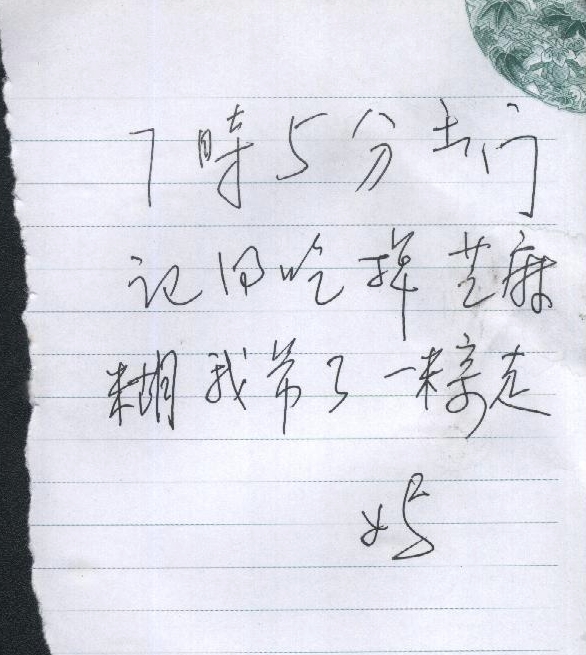 7時5分出门
记得吃掉芝麻
糊我带了一粽走
妈